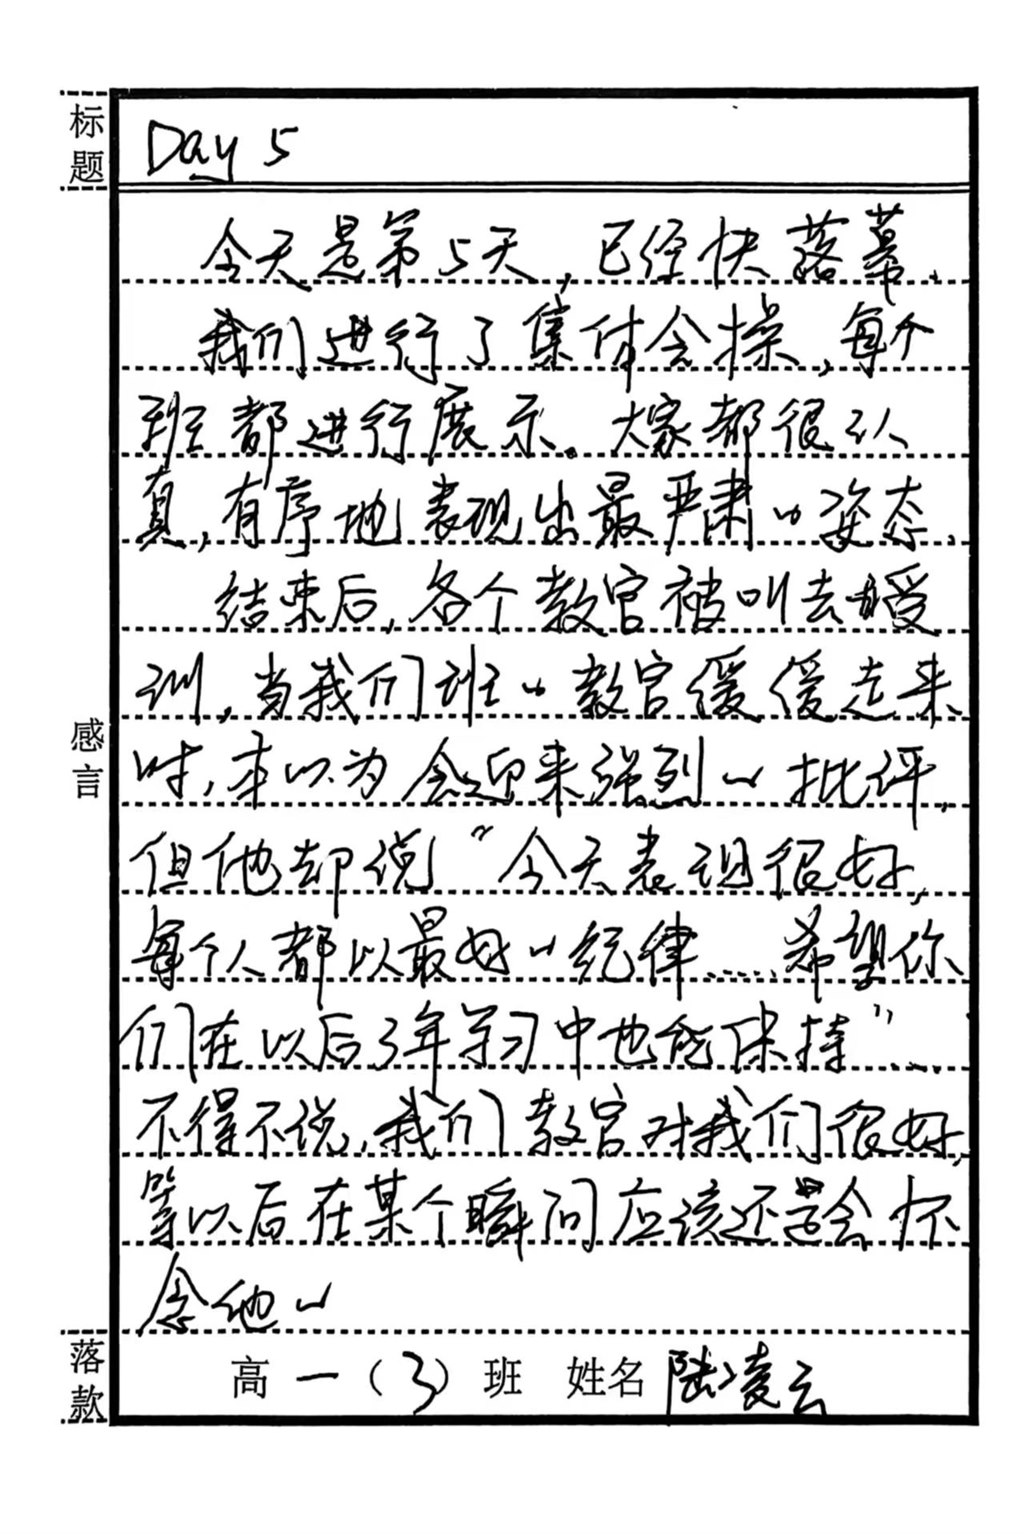 标题
Day 5
今天是第5天,已经快落幕、
我们进行了集体会操,每个
班都进行展示。大家都很认
真,有序地表现出最严肃的姿态、
结束后,各个教官被叫去受
训,当我们班的教官缓缓走来
时,本以为会迎来强烈的批评,
但他却说“今天表现很好,
每个人都以最好的纪律……希望你
们在以后3年学习中也能保持”……
不得不说,我们教官对我们很好,
等以后在某个瞬间应该还是会怀
念他的
感言
落款
高一(3)班 姓名 陆凌云